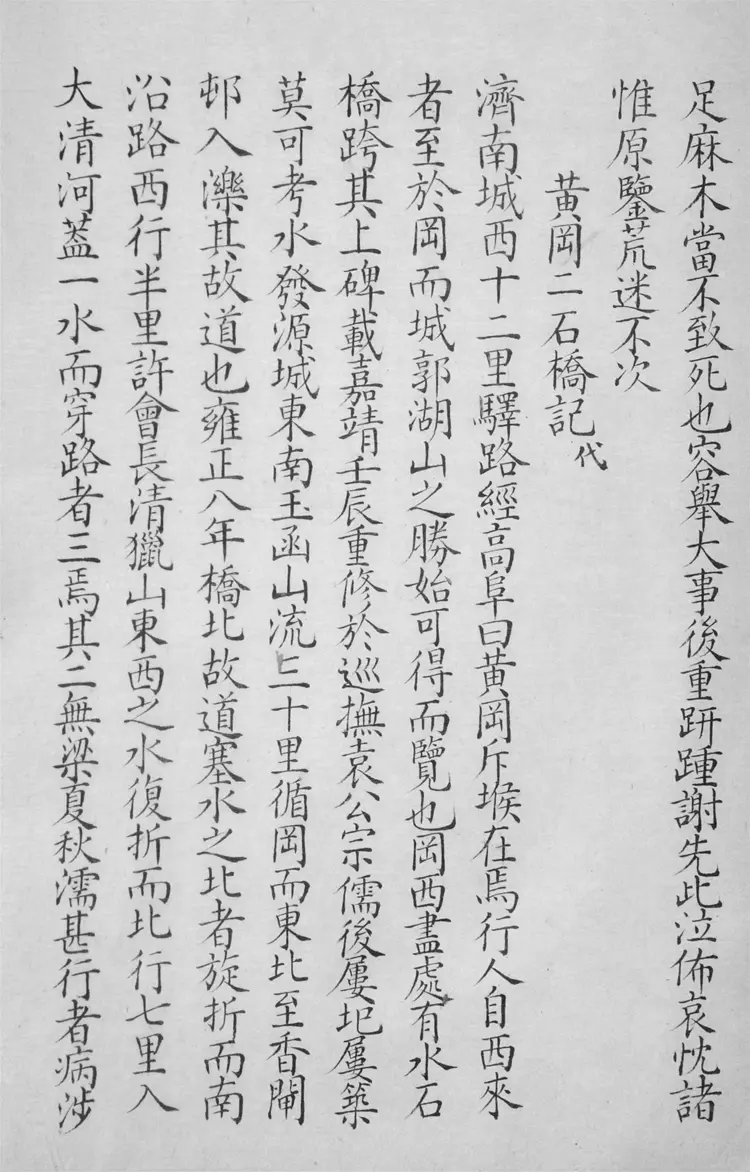 足麻木當不致死也容舉大事後重趼踵謝先此泣佈哀忱諸
惟原鑒荒迷不次
黃岡二石橋記代
濟南城西十二里驛路經高阜曰黃岡斥堠在焉行人自西來
者至於岡而城郭湖山之勝始可得而覽也岡西盡處有水石
橋跨其上碑載嘉靖壬辰重修於巡撫袁公宗儒後屢圮屢築
莫可考水發源城東南玉函山流二十里循岡而東北至香閘
邨入濼其故道也雍正八年橋北故道塞水之北者旋折而南
沿路西行半里許會長清獵山東西之水復折而北行七里入
大清河蓋一水而穿路者三焉其二無梁夏秋濡甚行者病涉